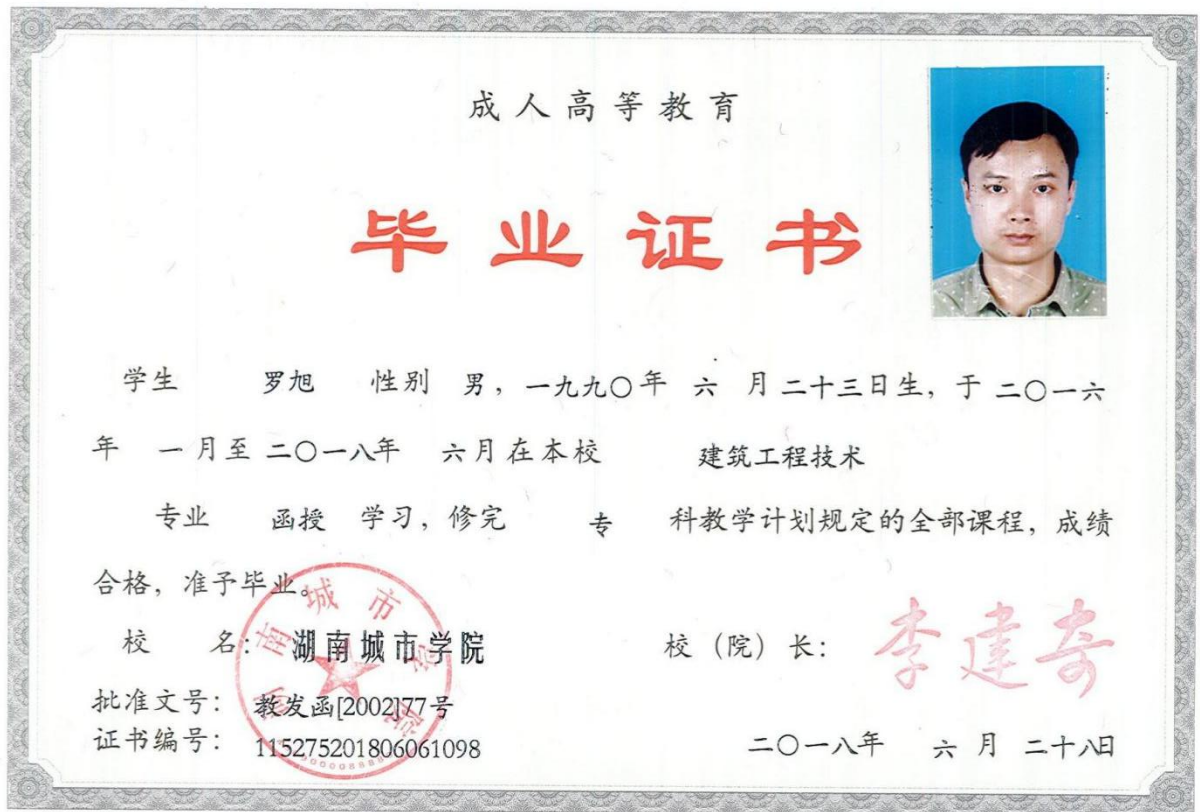 成人高等教育
毕业证书
学生 罗旭 性别 男，一九九〇年 六 月二十三日生，于 二〇一六
年 一月至 二〇一八年 六月在本校 建筑工程技术
专业 函授 学习，修完 专 科教学计划规定的全部课程，成绩
合格，准予毕业。
校 名：湖南城市学院
校（院）长：李建奇
批准文号：教发函[2002]77号
证书编号：115275201806061098
二〇一八年 六 月 二十八日
湖南城市学院